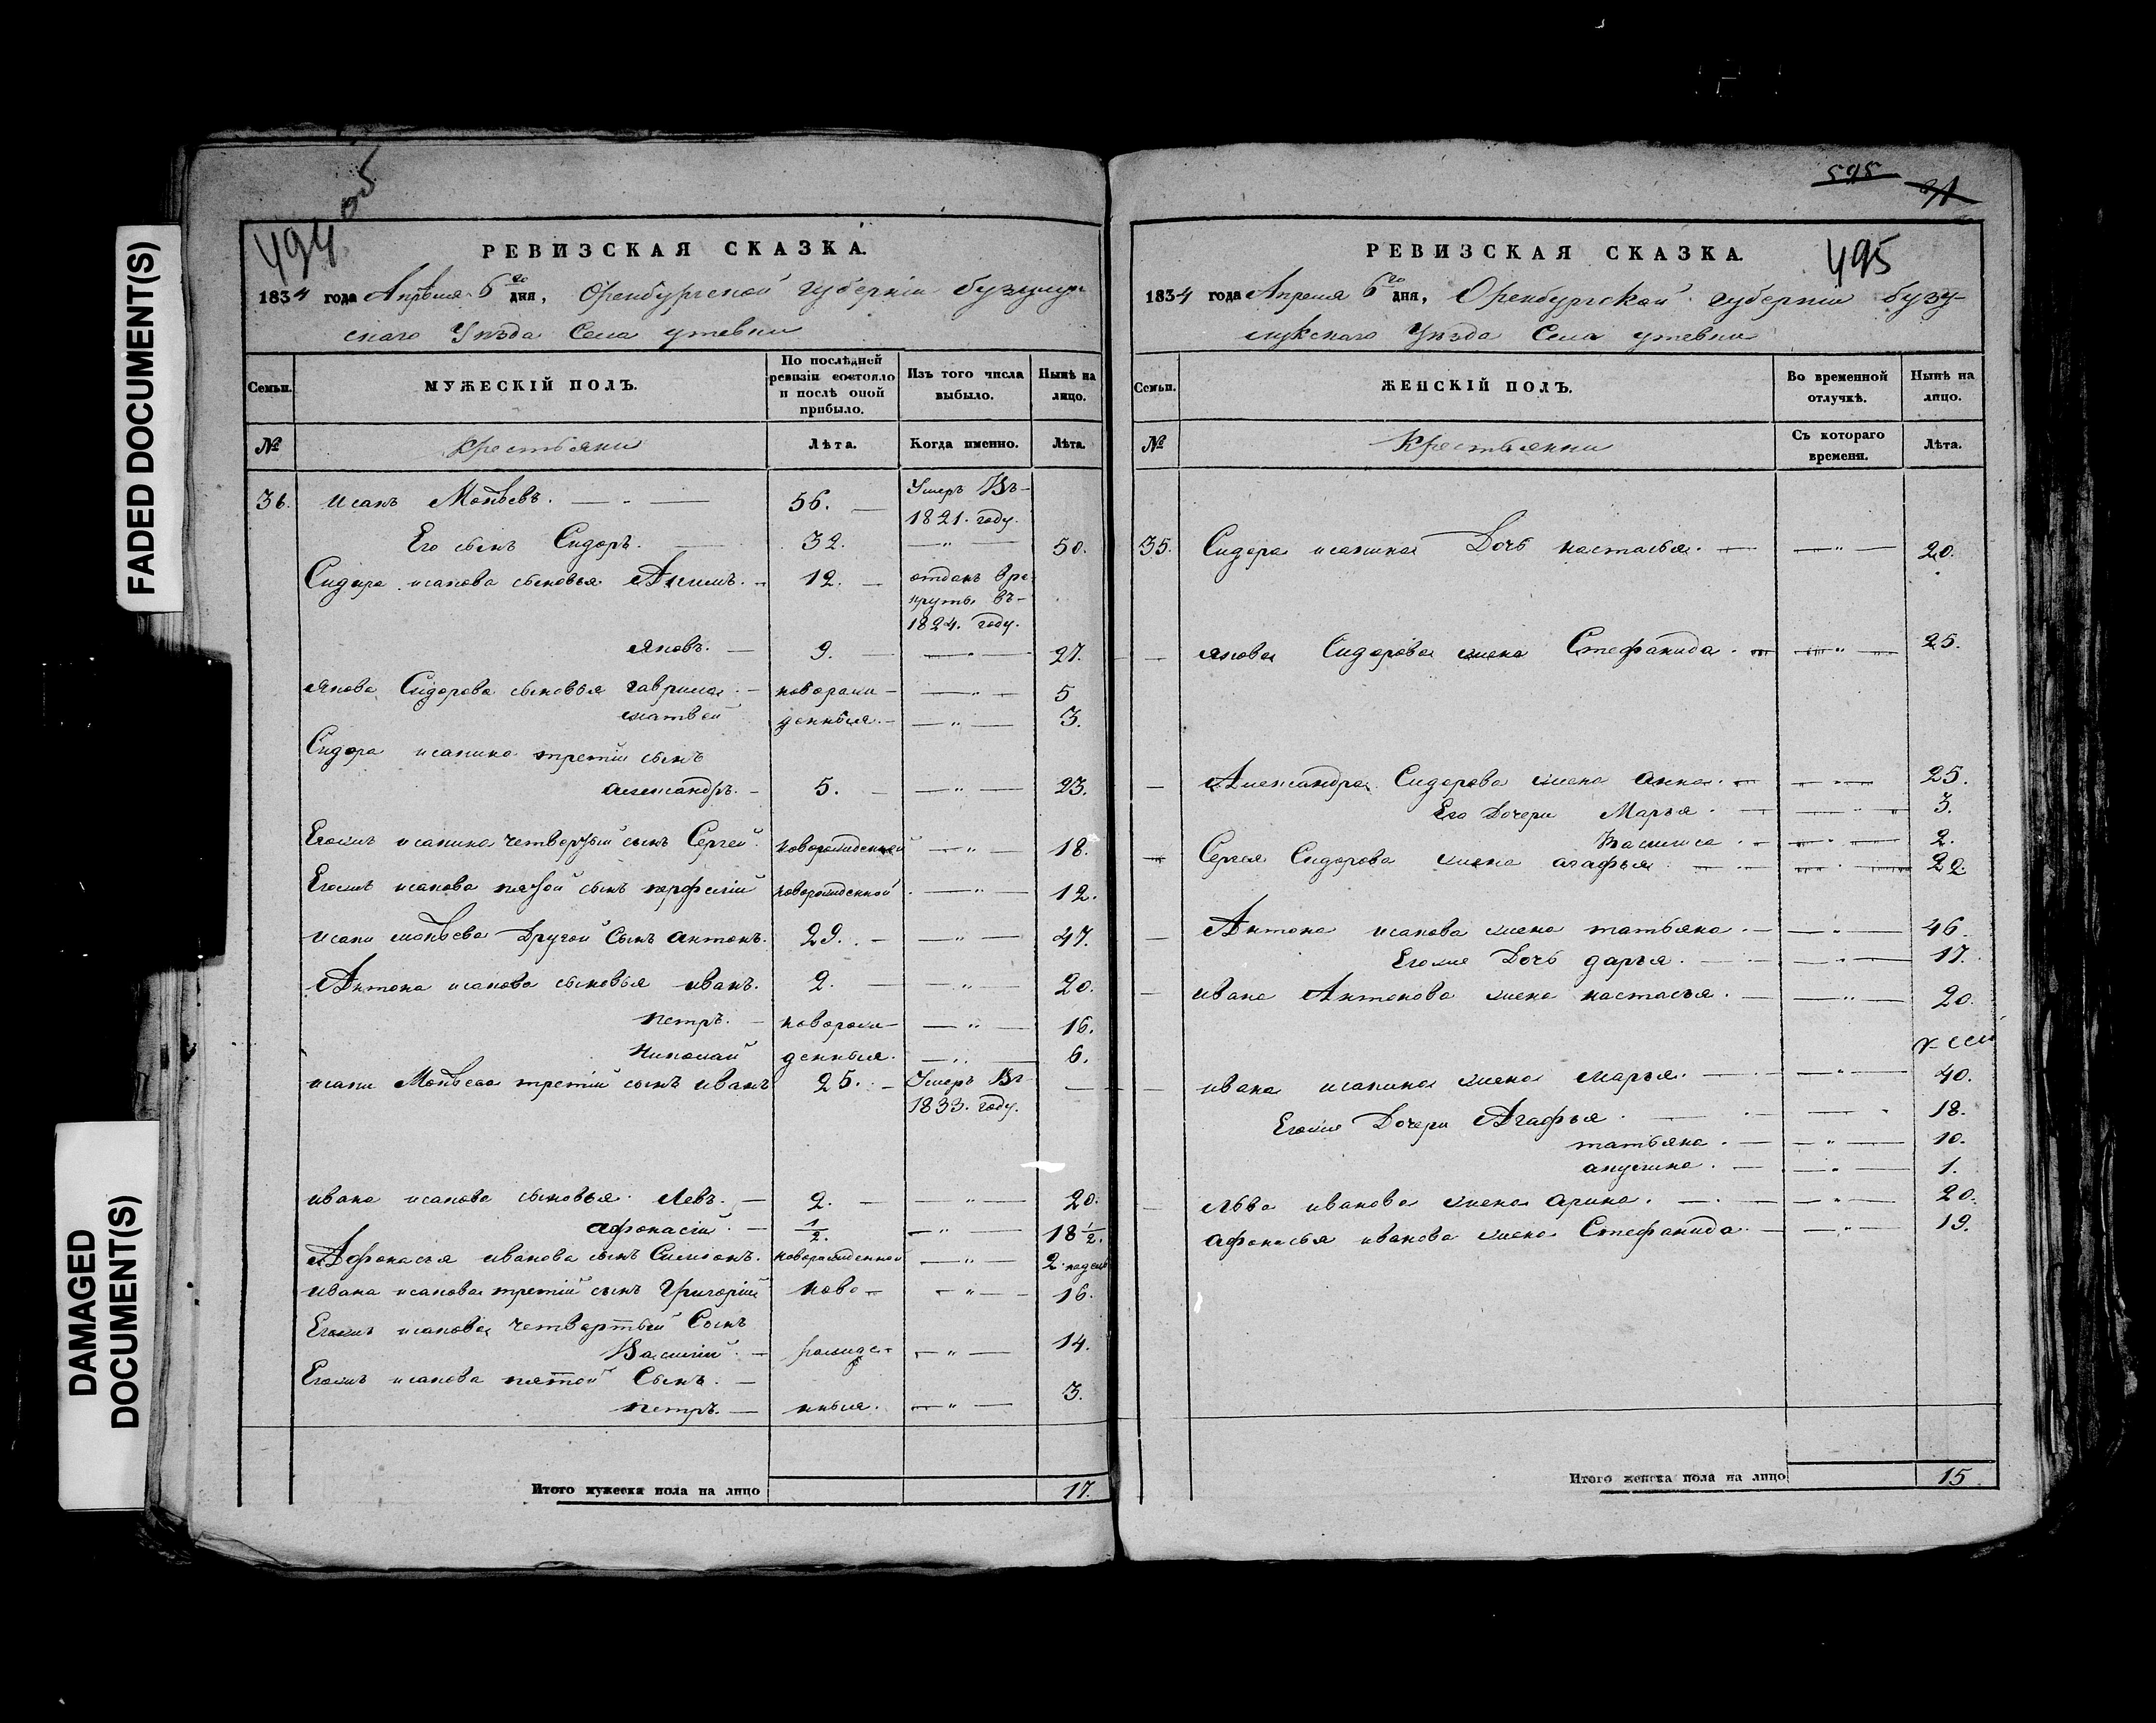 FADED DOCUMENT(S)
DAMAGED DOCUMENT(S)
494 об
РЕВИЗСКАЯ СКАЗКА.
1834 года Апреля 6го дня, Оренбургской губернии бузулук
скаго Уѣзда Села утевки
Семьи. МУЖЕСКІЙ ПОЛЪ. По послѣдней ревизіи состояло и послѣ оной прибыло. Изъ того числа выбыло. Нынѣ на лицо.
№ Крестьяни Лѣта. Когда именно. Лѣта.
36. Исакъ 56. Умеръ Въ
1821. году.
Его сынъ Сидоръ. 32. — " — 50.
Сидора исакова сыновья Акимъ. 12. отданъ вре
круты въ
1824. году.
яковъ. 9. — " — 27.
якова Сидорова сыновья гаврила. новорож — " — 5
матвей денныя. — " — 3.
Сидора исакина третіи сынъ
александръ. 5. — " — 23.
Егожъ исакина четвертый сынъ Сергей новорожденной — " — 18.
Егожъ исакова пятой сынъ порфегій новорожденной — " — 12.
Другой Сынъ антонъ. 29. — " — 47.
Антона исакова сыновья иванъ. 2. — " — 20.
петръ. новорож — " — 16.
николай денныя. — " — 6.
третій сынъ иванъ 25. Умеръ Въ
1833. году.
ивана исакова сыновья Левъ. 2. — " — 20.
афонасій. 1/2. — " — 18 1/2.
Афонасья иванова сынъ Симионъ. новорожденной — " — 2 недели
ивана исакова третій сынъ Григорій ново — " — 16.
Егожъ исакова четвертый Сынъ
Василій. рожде — " — 14.
Егожъ исакова пятой Сынъ.
петръ. нныя. — " — 3.
Итого мужеска пола на лицо 17.
595
495
РЕВИЗСКАЯ СКАЗКА.
1834 года Апреля 6го дня, Оренбургской губерніи бузу-
лукскаго Уѣзда Села утевки
Семьи. ЖЕНСКІЙ ПОЛЪ. Во временной отлучкѣ. Нынѣ на лицо.
№ Крестьянки Съ котораго времени. Лѣта.
35. Сидора исакина Дочь настасья. — " — 20.
якова Сидорова жена Стефанида. — " — 25.
Александра Сидорова жена анна. — " — 25.
Его Дочери Марья. — " — 3.
Василиса. — " — 2.
Сергея Сидорова жена агафья — " — 22.
Антона исакова жена татьяна. — " — 46.
Егожа Дочь дарья. — " — 17.
ивана Антонова жена настасья. — " — 20.
ивана исакина жена марья. — " — 40.
Егожа Дочери Агафья — 18.
татьяна. — " — 10.
акулина. — " — 1.
льва иванова жена арина. — " — 20.
афонасья иванова жена Стефанида — " — 19.
Итого женска пола на лицо 15.